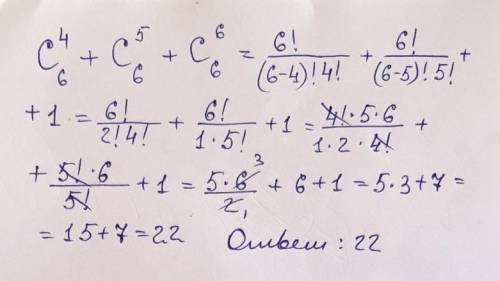 C₆⁴ + C₆⁵ + C₆⁶ = 6!/((6-4)!4!) + 6!/((6-5)!5!) +
+ 1 = 6!/(2!4!) + 6!/(1·5!) + 1 = (4!·5·6)/(1·2·4!) +
+ (5!·6)/5! + 1 = (5·6³)/2₁ + 6 + 1 = 5·3 + 7 =
= 15 + 7 = 22 Ответ: 22